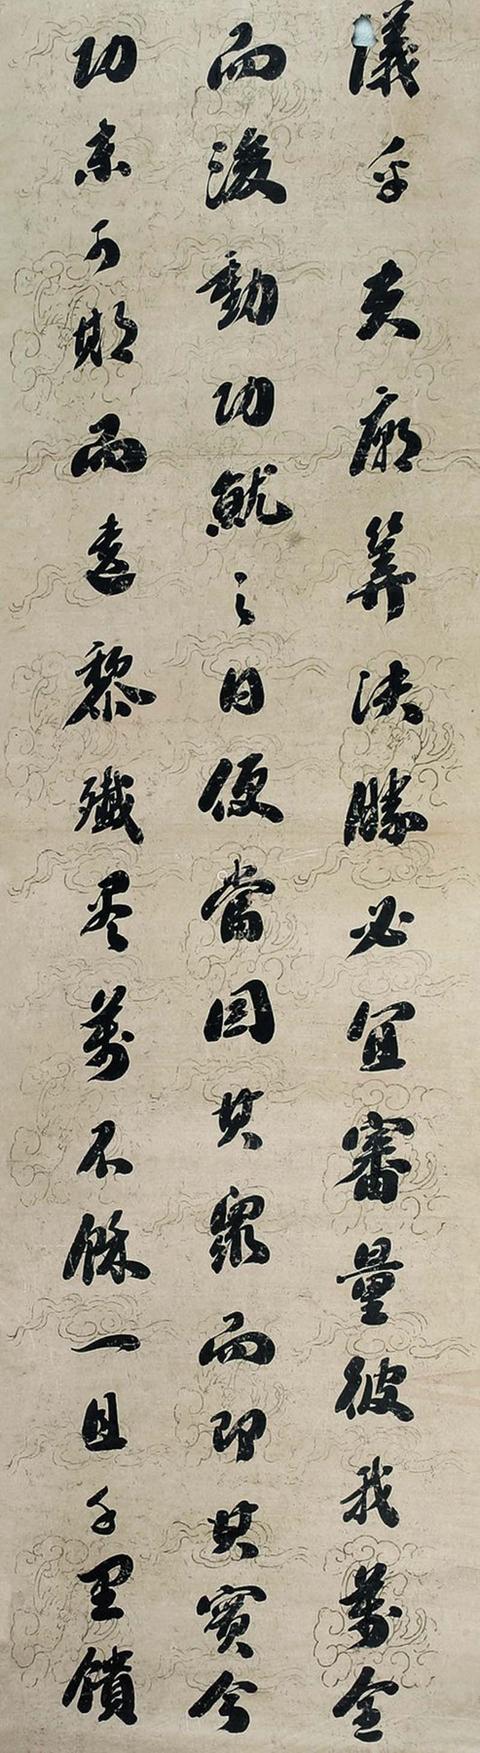 議乎夫廟筭決勝必宜審量彼我萬全
而後動功就之日便當因其衆而即其實今
功未可期而遺黎殲尽萬不餘一且千里饋